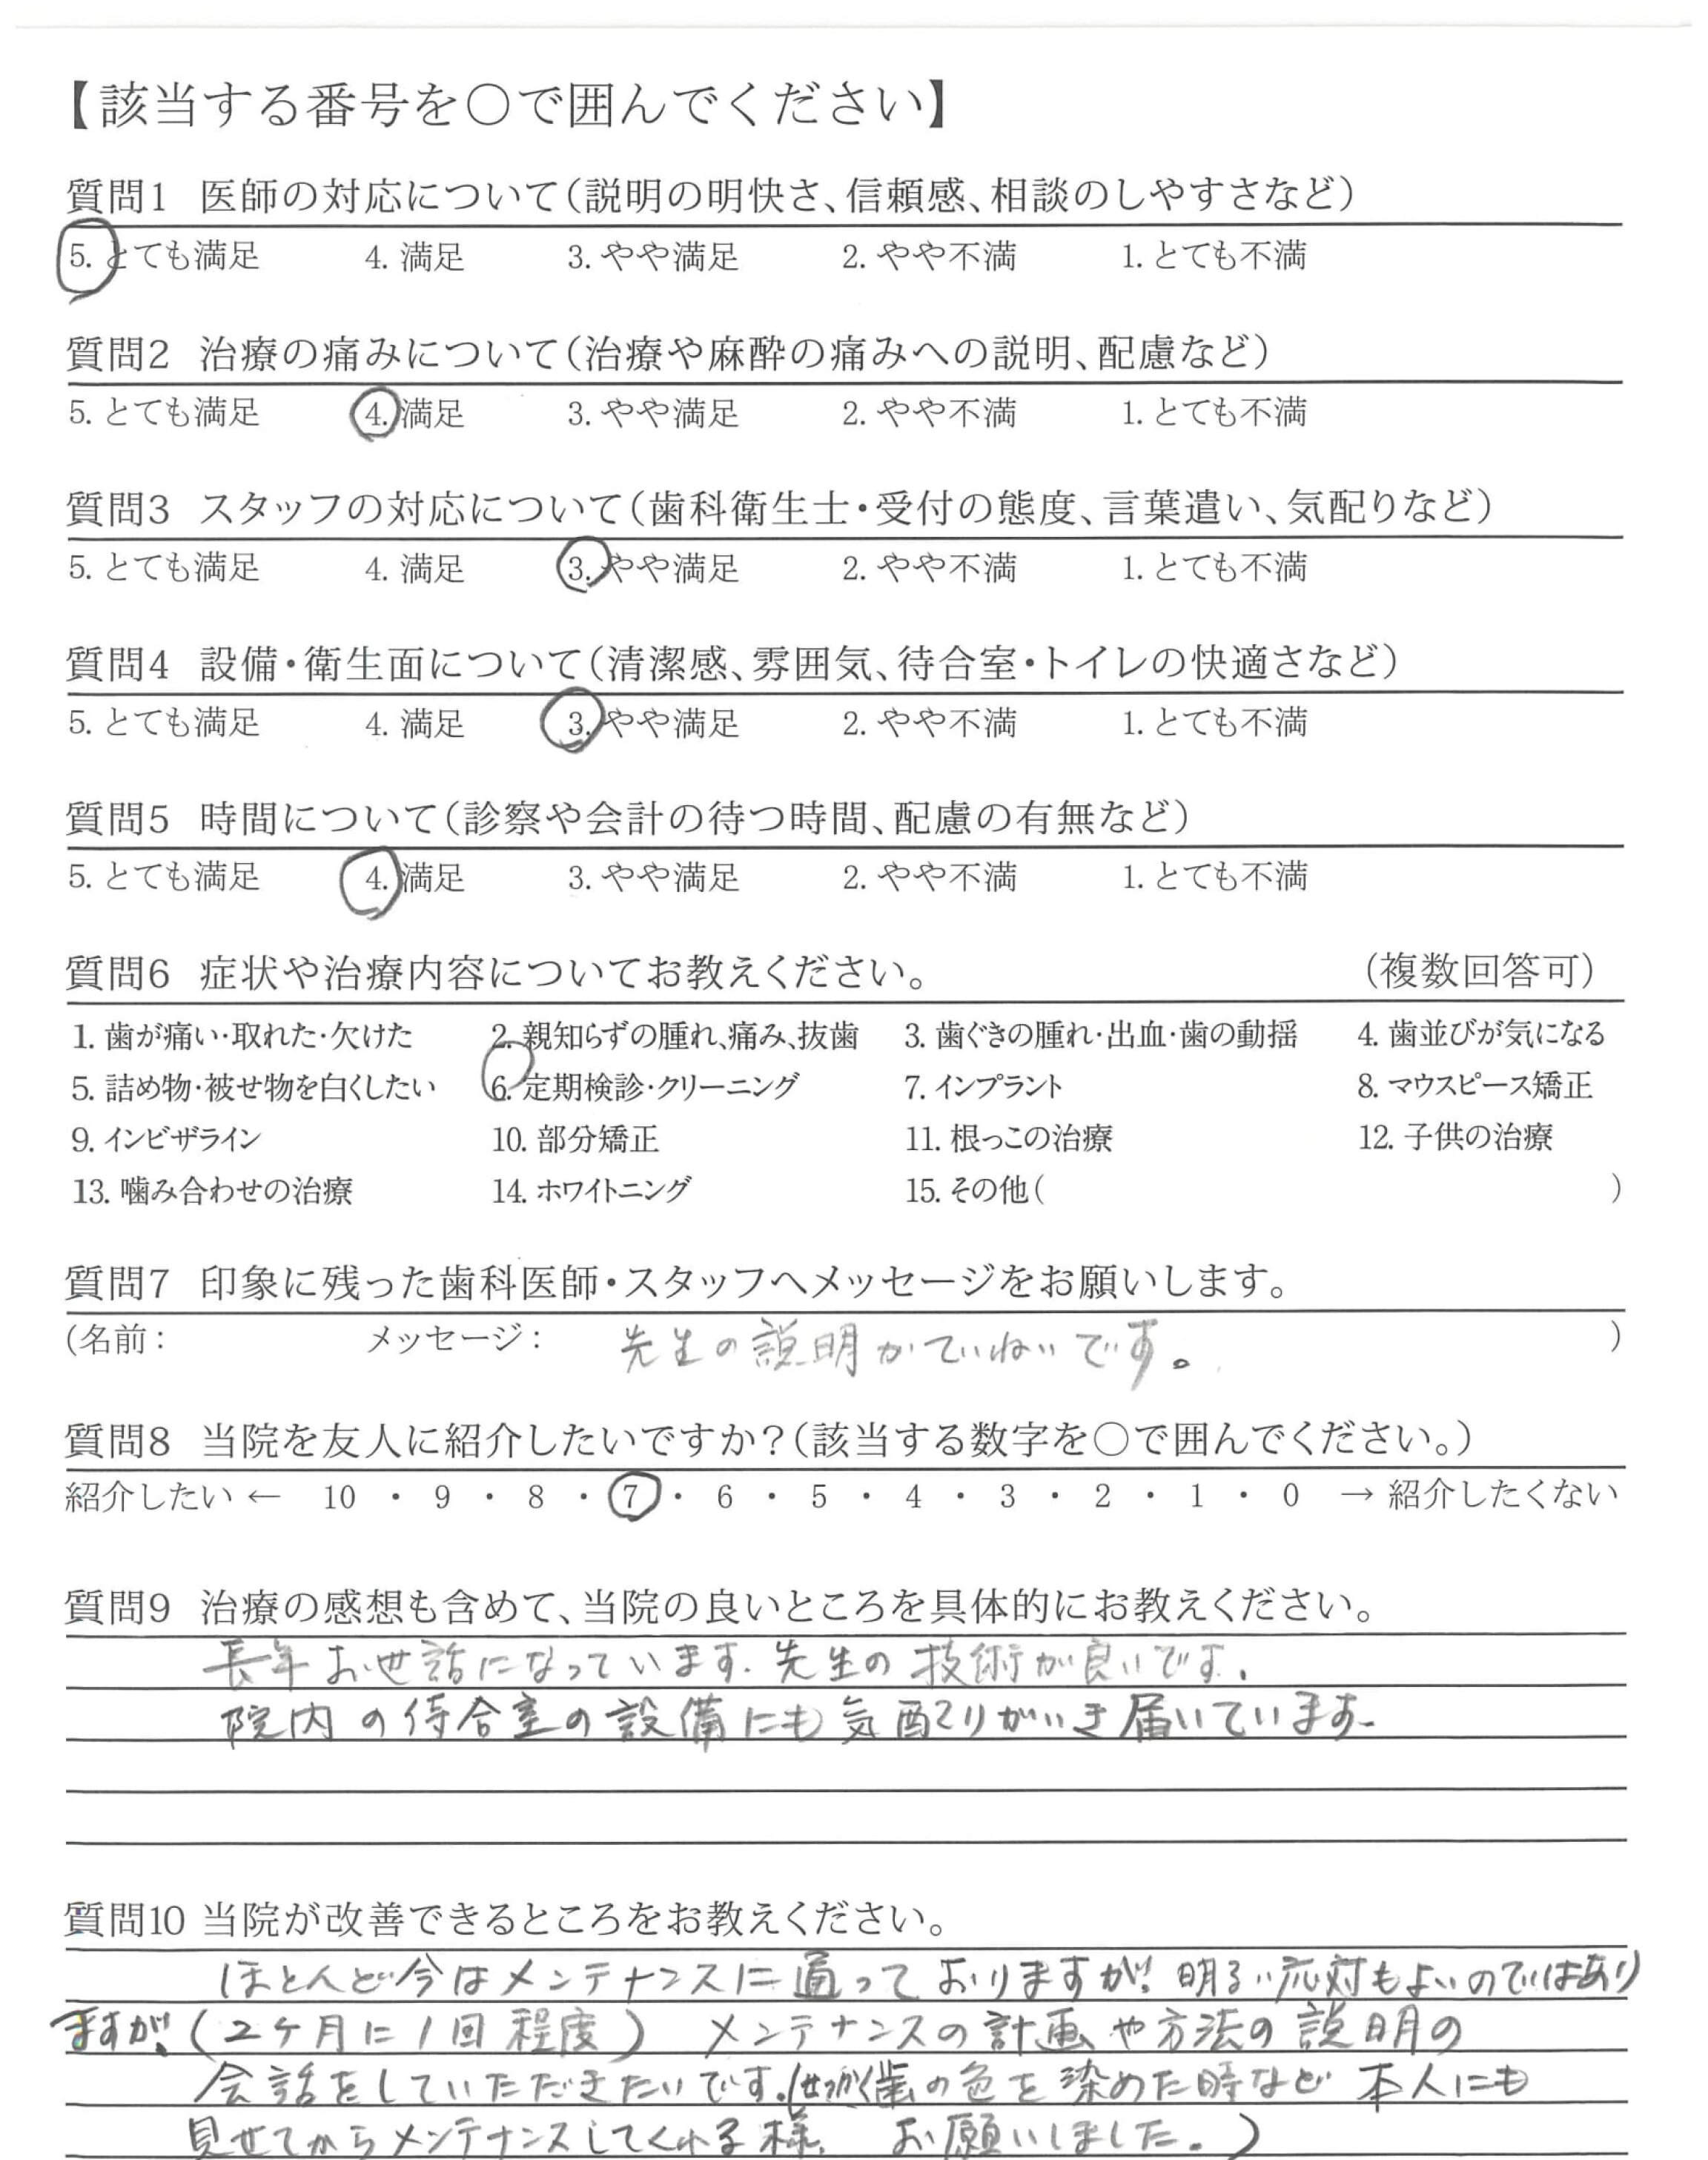 【該当する番号を○で囲んでください】
質問1 医師の対応について(説明の明快さ、信頼感、相談のしやすさなど)
5. とても満足 4. 満足 3. やや満足 2. やや不満 1. とても不満
質問2 治療の痛みについて(治療や麻酔の痛みへの説明、配慮など)
5. とても満足 4. 満足 3. やや満足 2. やや不満 1. とても不満
質問3 スタッフの対応について(歯科衛生士・受付の態度、言葉遣い、気配りなど)
5. とても満足 4. 満足 3. やや満足 2. やや不満 1. とても不満
質問4 設備・衛生面について(清潔感、雰囲気、待合室・トイレの快適さなど)
5. とても満足 4. 満足 3. やや満足 2. やや不満 1. とても不満
質問5 時間について(診察や会計の待つ時間、配慮の有無など)
5. とても満足 4. 満足 3. やや満足 2. やや不満 1. とても不満
質問6 症状や治療内容についてお教えください。 (複数回答可)
1. 歯が痛い・取れた・欠けた 2. 親知らずの腫れ、痛み、抜歯 3. 歯ぐきの腫れ・出血・歯の動揺 4. 歯並びが気になる
5. 詰め物・被せ物を白くしたい 6. 定期検診・クリーニング 7. インプラント 8. マウスピース矯正
9. インビザライン 10. 部分矯正 11. 根っこの治療 12. 子供の治療
13. 噛み合わせの治療 14. ホワイトニング 15. その他( )
質問7 印象に残った歯科医師・スタッフへメッセージをお願いします。
(名前: メッセージ: 先生の説明がていねいです。 )
質問8 当院を友人に紹介したいですか?(該当する数字を○で囲んでください。)
紹介したい ← 10 ・ 9 ・ 8 ・ 7 ・ 6 ・ 5 ・ 4 ・ 3 ・ 2 ・ 1 ・ 0 → 紹介したくない
質問9 治療の感想も含めて、当院の良いところを具体的にお教えください。
長年お世話になっています。先生の技術が良いです。
院内の待合室の設備にも気配りがいき届いています。
質問10 当院が改善できるところをお教えください。
ほとんど今はメンテナンスに通っておりますが、明るい応対もよいのではあり
ますが、(2ヶ月に1回程度) メンテナンスの計画や方法の説明の
会話をしていただきたいです。(せっかく歯の色を染めた時など本人にも
見せてからメンテナンスしてくれる様、お願いしました。)